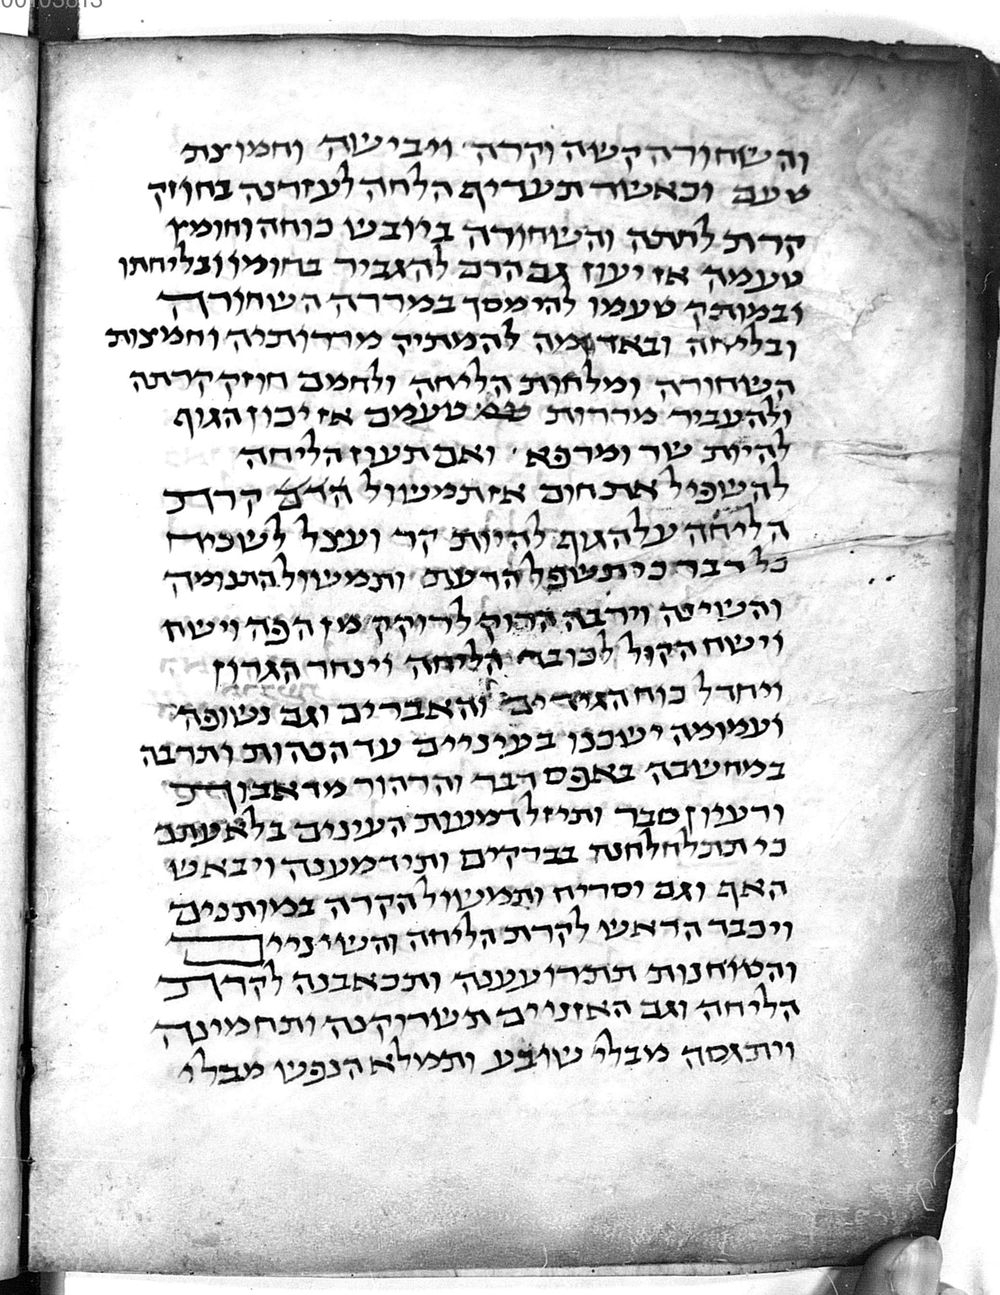 והשחורה קשה וקרה ויבישה וחמוצת
טעם וכאשר תעדיף הלחה לעזרנה בחוזק
קרת לחתה והשחורה ביובש כוחה וחומץ
טעמה אז יעוז גם הדם להגביר בחומו ובליחתו
ובמותק טעמו להימסך במררה השחורה
ובליחה ובאדומה להמתיק מרדותיה וחמיצות
השחורה ומלחות הליחה ולחמם חוזק קרתה
ולהעביר מררות טעמם אז יכון הגוף
להיות שר ומרפא ואם תעוז הליחה
להשפיל את חום אז תמשול הדם קרת
הליחה על הגוף להיות קר ועצל לשכוח
כל דבר כי תשפל הדעת ותמשול התנומה
והשינה וירבה הרוק לרוקק מן הפה וישח
וישח הקול לכובד הליחה וינחר הגרון
ויחדל כוח הגידים והאברים וגם נשופה
ועמומה ישכנו בעיניים עד הכהות ותרבה
במחשבה באפס דבר והרהור מדאבון
ורעיון סבר ותיזל דמעות העינים בלא עתם
כי תתלחלחנה בברקים ותידמענה ויבאש
האף וגם יסריח ותמשול הקרה במותנים
ויכבד הראש לקרת הליחה והשיניים
והטוחנות תתרועענה ותכאבנה לקרת
הליחה וגם האזניים תשרוקנה ותחמינה
ויתגסה מבלי שובע ותמלא הנפש מבלי